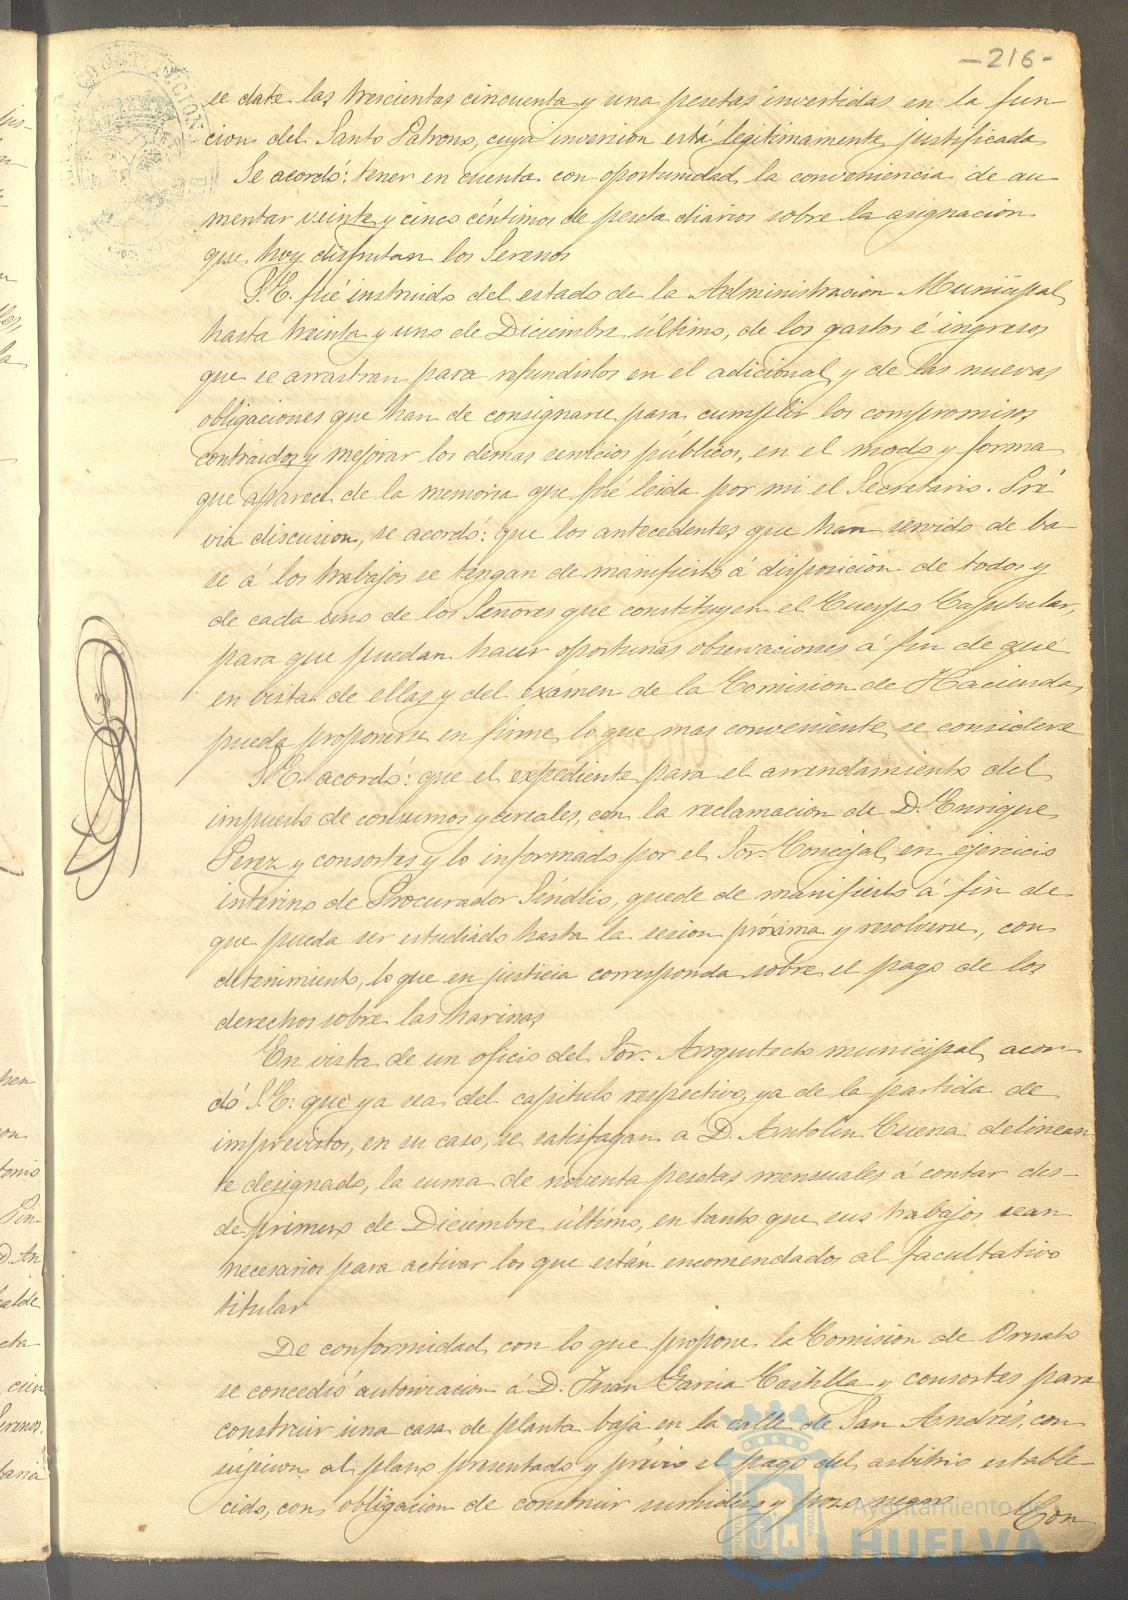 -216-
se date las trescientas cincuenta y una pesetas invertidas en la fun
cion del Santo Patrono, cuya inversion está legítimamente justificada
Se acordó: tener en cuenta con oportunidad la conveniencia de au
mentar veinte y cinco céntimos de peseta diarios sobre la asignacion
que hoy disfrutan los Serenos
S.E. fué instruido del estado de la Administracion Municipal
hasta treinta y uno de Diciembre último, de los gastos é ingresos
que se arrastran para refundirlos en el adicional y de las nuevas
obligaciones que han de consignarse para cumplir los compromisos
contraidos y mejorar los demas servicios públicos, en el modo y forma
que aparece de la memoria que fué leida por mi el Secretario. Pré
via discusion, se acordó: que los antecedentes que han servido de ba
se á los trabajos se tengan de manifiesto á disposicion de todos y
de cada uno de los Señores que constituyen el Cuerpo Capitular,
para que puedan hacer oportunas observaciones á fin de que
en vista de ellas y del exámen de la Comision de Hacienda
pueda proponerse en firme lo que mas conveniente se considere
S.E. acordó: que el expediente para el arrendamiento del
impuesto de consumos y cereales, con la reclamacion de D. Enrique
Perez y consortes y lo informado por el Sor. Concejal en ejercicio
interino de Procurador Síndico, quede de manifiesto á fin de
que pueda ser estudiado hasta la sesion próxima y resolverse, con
detenimiento, lo que en justicia corresponda sobre el pago de los
derechos sobre las harinas
En vista de un oficio del Sor. Arquitecto municipal acor
dó S.E: que ya sea del capitulo respectivo, ya de la partida de
imprevistos, en su caso, se satisfagan a D. Antolin Cuena delinean
te designado, la suma de noventa pesetas mensuales á contar des-
de primero de Diciembre último, en tanto que sus trabajos sean
necesarios para activar los que están encomendados al facultativo
titular
De conformidad con lo que propone la Comision de Ornato
se concedió autorizacion á D. Juan Garcia Castilla y consortes para
construir una casa de planta baja en la calle de San Andrés, con
sujecion al plano presentado y prévio el pago del arbitrio estable-
cido, con obligacion de construir sumidero y pozo negro
Con
Ayuntamiento de
HUELVA